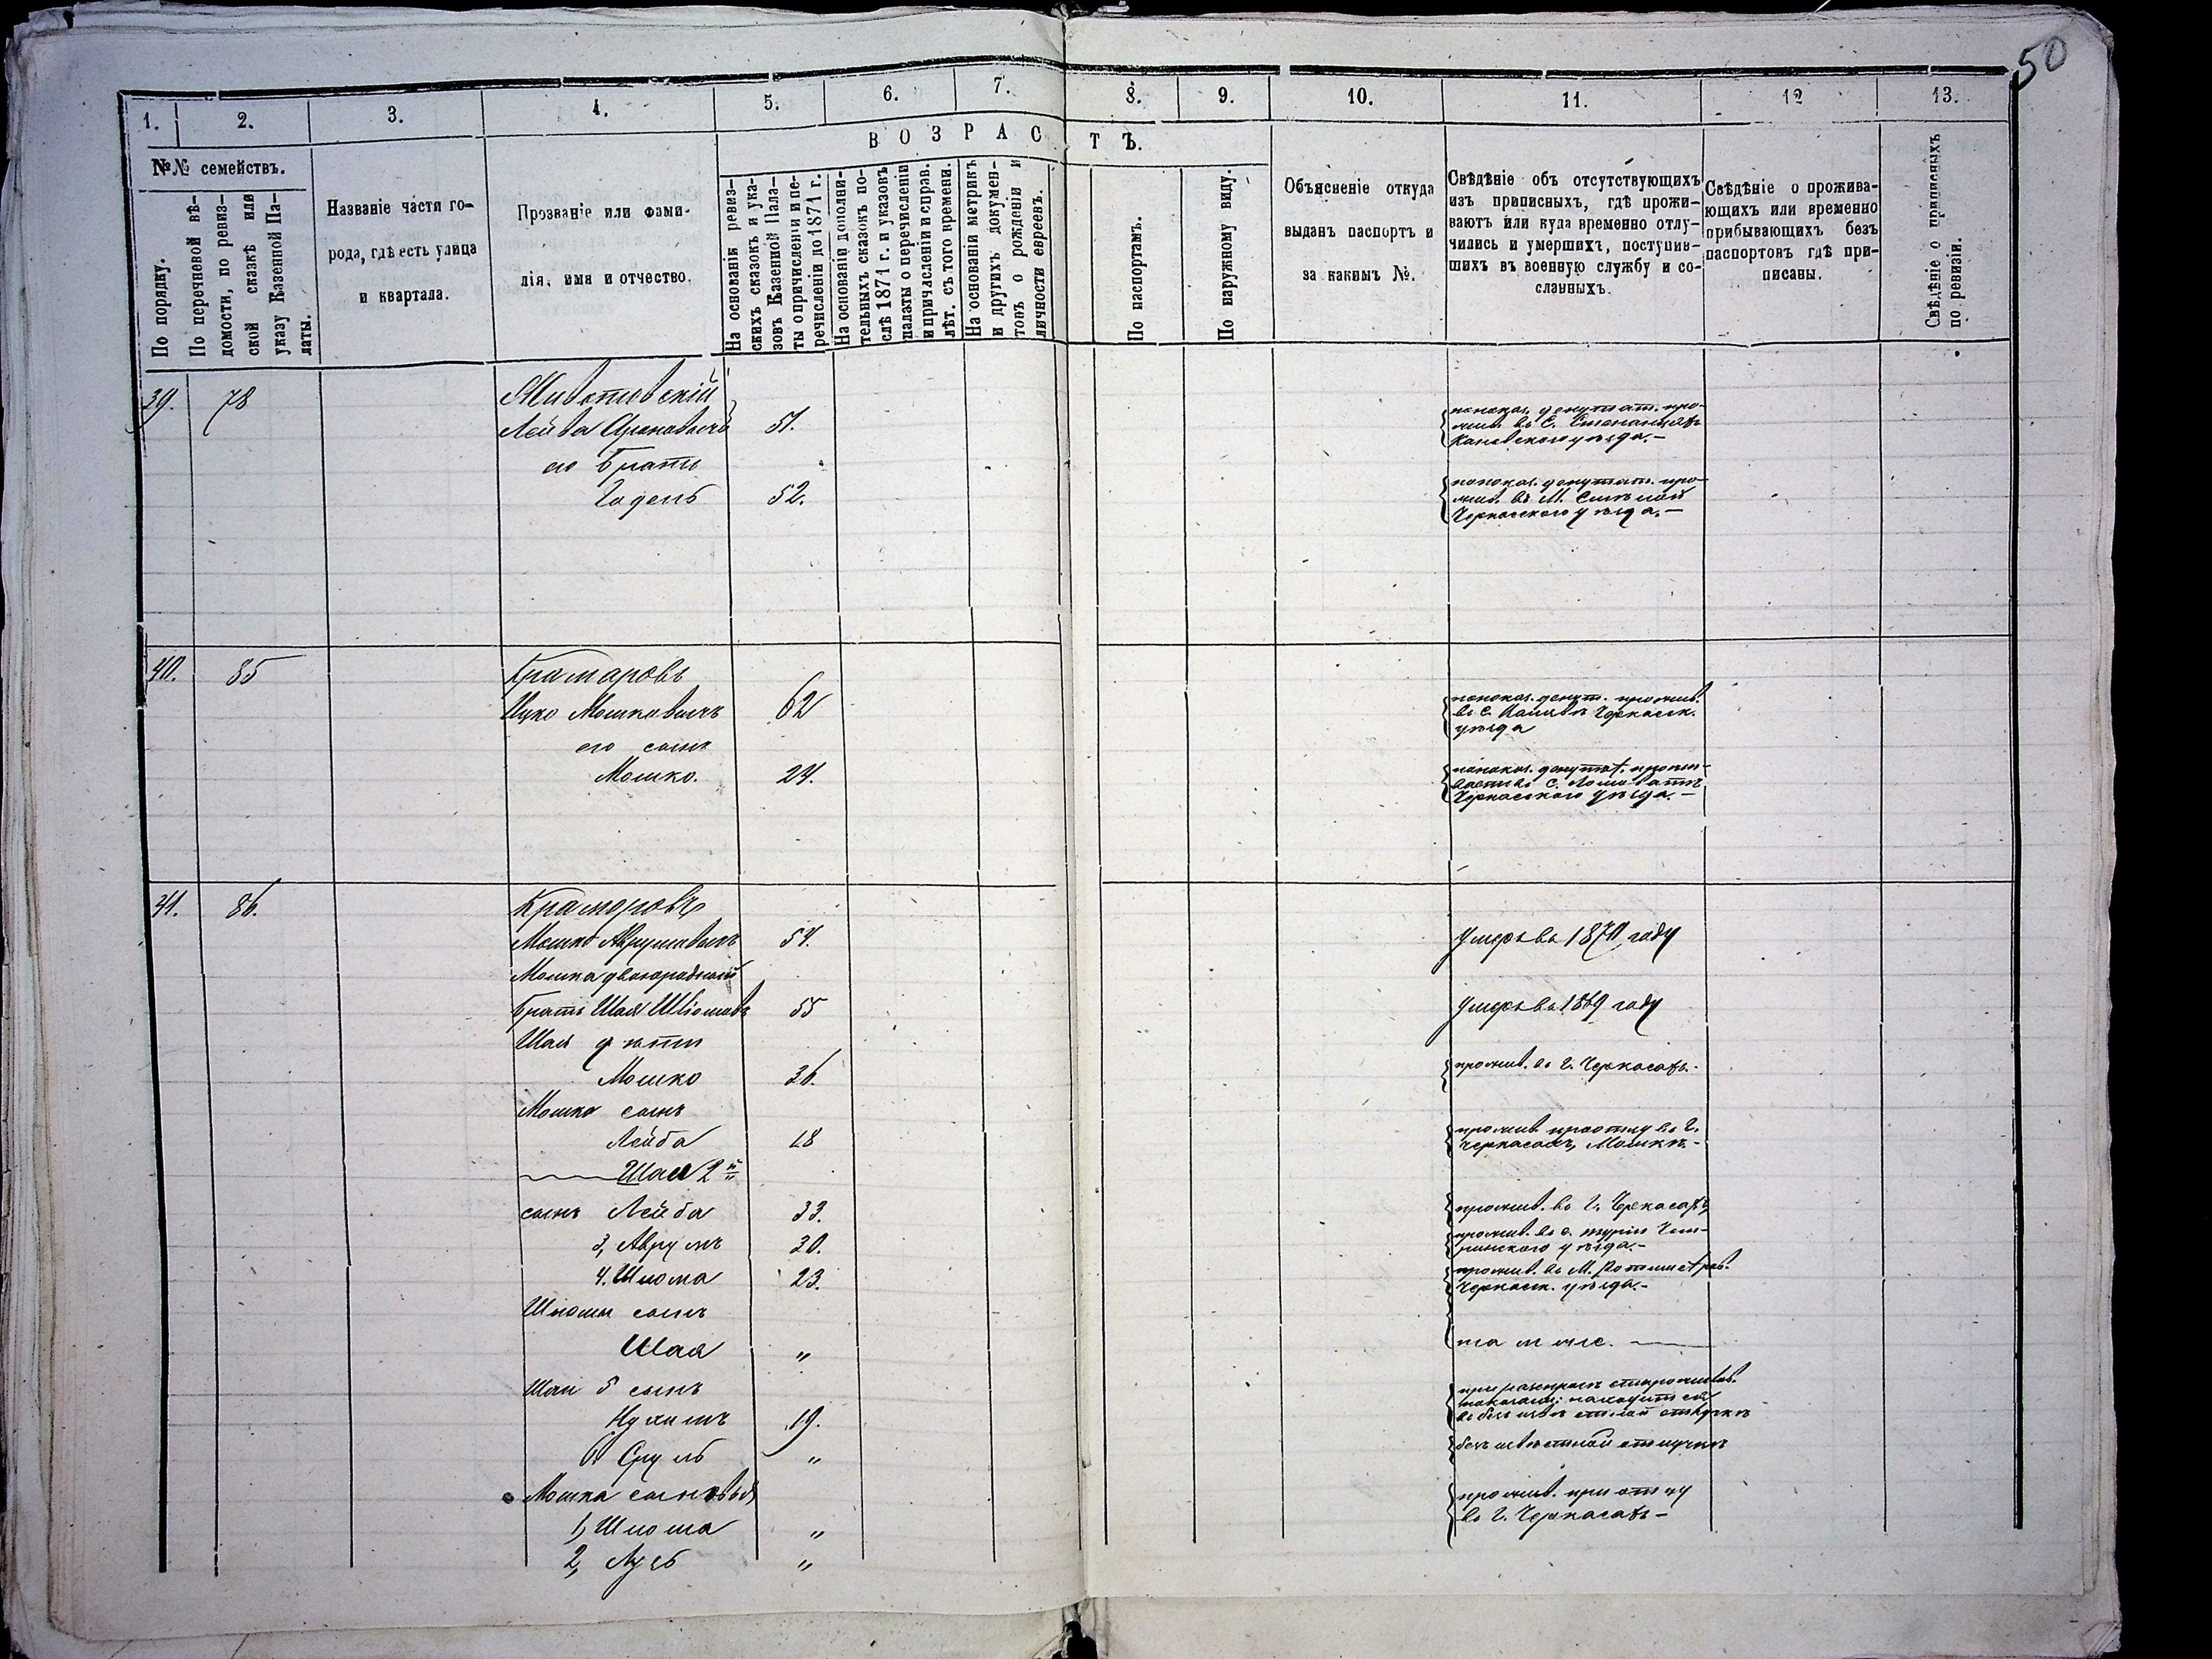 50
1. 2. 3. 4. 5. 6. 7. 8. 9. 10. 11. 12 13.
№№ семействъ.
По порядку.
По перечневой вѣ-
домости, по ревиз-
ской сказкѣ или
указу Казенной Па-
латы.
Названіе части го-
рода, гдѣ есть улица
и квартала.
Прозваніе или фами-
лія, имя и отчество.
ВОЗРАСТЪ.
На основаніи ревиз-
скихъ сказокъ и ука-
зовъ Казенной Пала-
ты о причисленіи и пе-
речисленіи до 1871 г.
На основаніи дополни-
тельныхъ сказокъ по-
слѣ 1871 г. и указовъ
палаты о перечисленіи
и причисленіи и справ.
лѣт. съ того времени.
На основаніи метрикъ
и другихъ докумен-
товъ о рожденіи и
личности евреевъ.
По паспортамъ.
По наружному виду.
Объясненіе откуда
выданъ паспортъ и
за какимъ №.
Свѣдѣніе объ отсутствующихъ
изъ приписныхъ, гдѣ прожи-
ваютъ или куда временно отлу-
чились и умершихъ, поступив-
шихъ въ военную службу и со-
сланныхъ.
Свѣдѣніе о прожива-
ющихъ или временно
прибывающихъ безъ
паспортовъ гдѣ при-
писаны.
Свѣдѣніе о приписныхъ
по ревизіи.
39. 78 Животовскій
Лейба Ароновичъ 51.
показ. депутат. про-
жив. въ С. Степанцахъ
Каневского уѣзда.—
его братъ
Годель 52.
показ. депутат. про-
жив. въ М. Смѣлой
Черкасского уѣзда.—
40. 85 Крамаровъ
Ицко Мошковичъ 62
показ. депут. прожив.
въ С. Черкасск.
уѣзда
его сынъ
Мошко. 24.
показ. депутат. прожи-
ваетъ въ С. Ломоватѣ
Черкасского уѣзда.—
41. 86. Крамаровъ
Мошко Аврумовичъ 54. умеръ въ 1870 году
Мошка двоюродный
братъ Шая Шліомовъ 55 умеръ въ 1869 году
Шаи дѣти
Мошко 36. прожив. въ г. Черкасахъ.
Мошка сынъ
Лейба 18
прожив. при отцу въ г.
Черкасахъ, Мошкѣ.—
Шаи 2й
сынъ Лейба 33. прожив. въ г. Черкасахъ
3, Аврумъ 30.
прожив. въ с. туріи Чиги-
ринского уѣзда.—
4. Шлома 23.
прожив. въ М. Ротмистров.
Черкасск. уѣзда.—
Шломы сынъ
Шая „ тамже.
Шаи 5 сынъ
Нухимъ 19.
въ безъизвѣстной отлучкѣ
6 Сруль „ безъизвѣстной отлучкѣ
Мошка сыновья
1, Шлома „
прожив. при отцу
въ г. Черкасахъ —
2, Лузь „